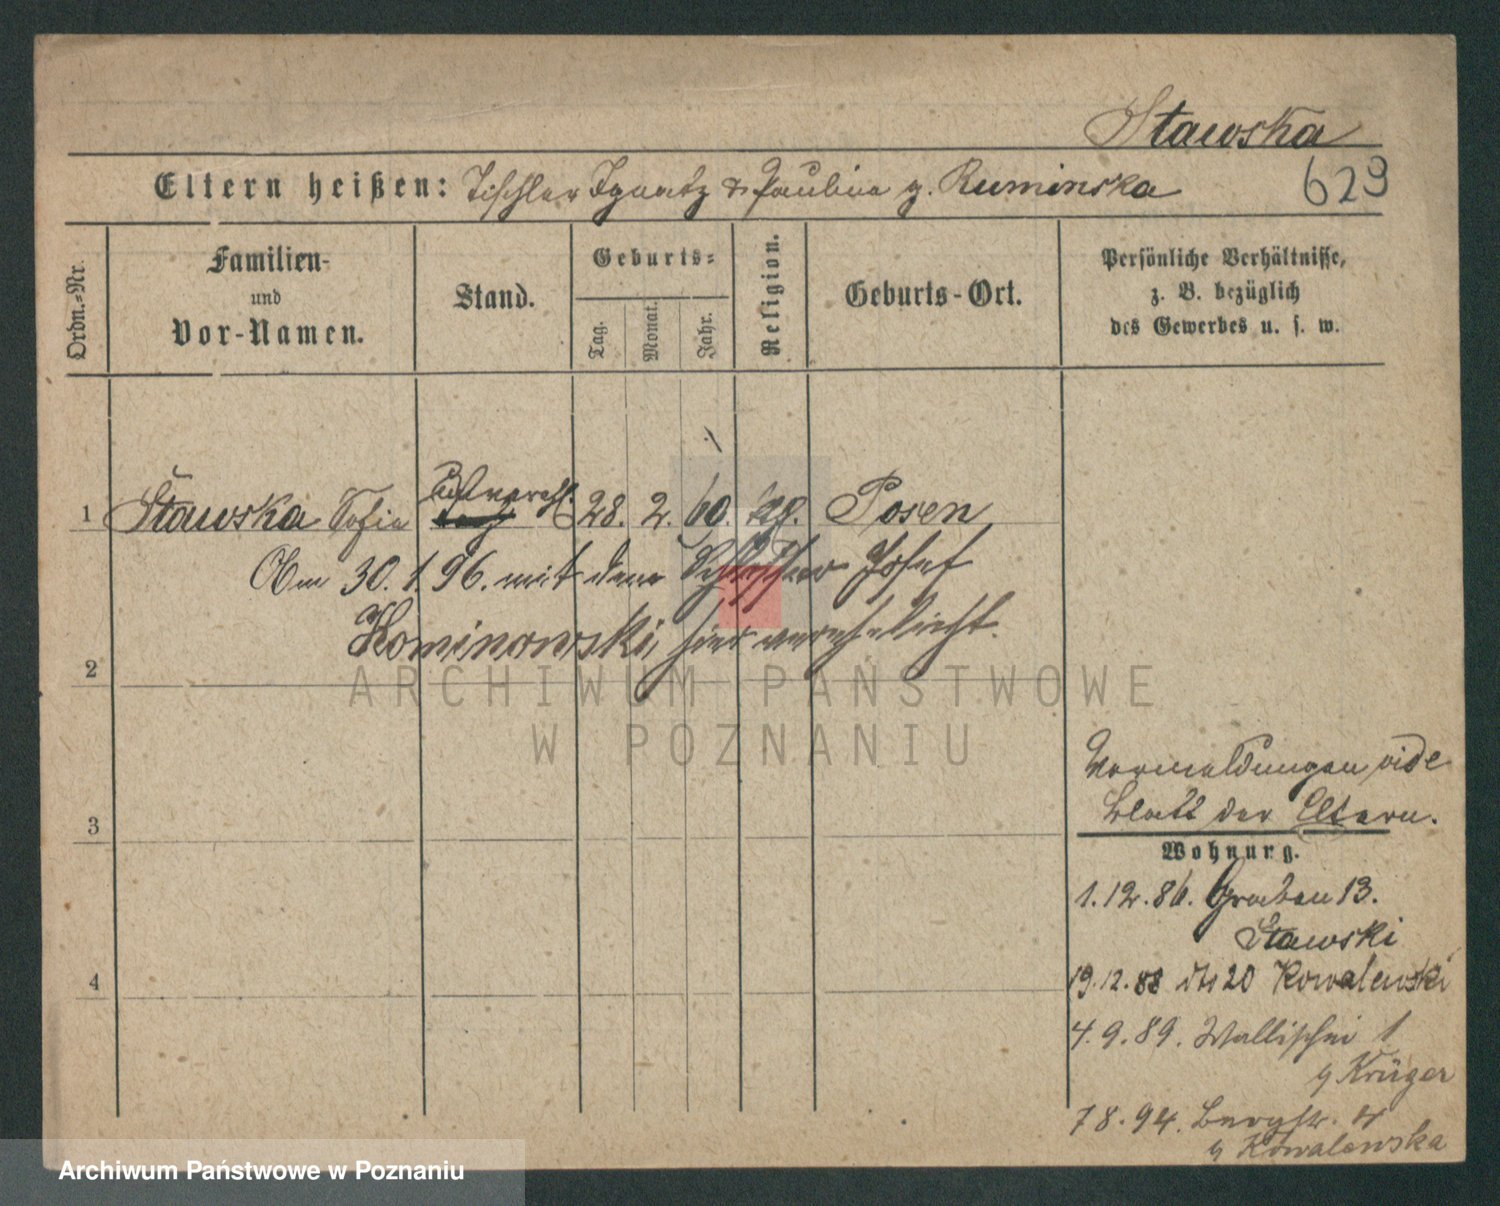 Stawska
Eltern heißen: Tischler Ignatz & Paulina g. Ruminska
629
Ordn.-Nr.
Familien-
und
Vor-Namen.
Stand.
Geburts-
Tag.
Monat.
Jahr.
Religion.
Geburts-Ort.
Persönliche Verhältnisse,
z. B. bezüglich
des Gewerbes u. s. w.
1 Stawska Sofia 28. 2. 60. Posen
30.1.96. mit dem Schlosser Josef
Kominowski, hier verehelicht.
2
Vormeldungen vide
Blatt der Eltern.
3
Wohnung.
1.12.86. Graben 13.
Stawski
4
19.12.88 dto 20 Kowalewski
4.9.89. Wallischei 1
b Krüger
7 8.94. Bergstr.
b Kowalewska
ARCHIWUM PAŃSTWOWE
W POZNANIU
Archiwum Państwowe w Poznaniu